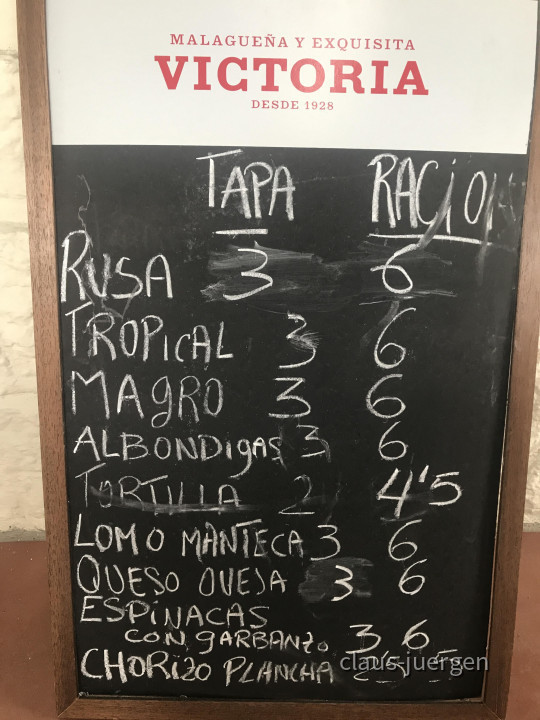 MALAGUEÑA Y EXQUISITA
VICTORIA
DESDE 1928
TAPA RACION
RUSA 3 6
TROPICAL 3 6
MAGRO 3 6
ALBONDIGAS 3 6
TORTILLA 2 4'5
LOMO MANTECA 3 6
QUESO OVEJA 3 6
ESPINACAS
CON GARBANZO 3 6
CHORIZO PLANCHA
claus-juergen